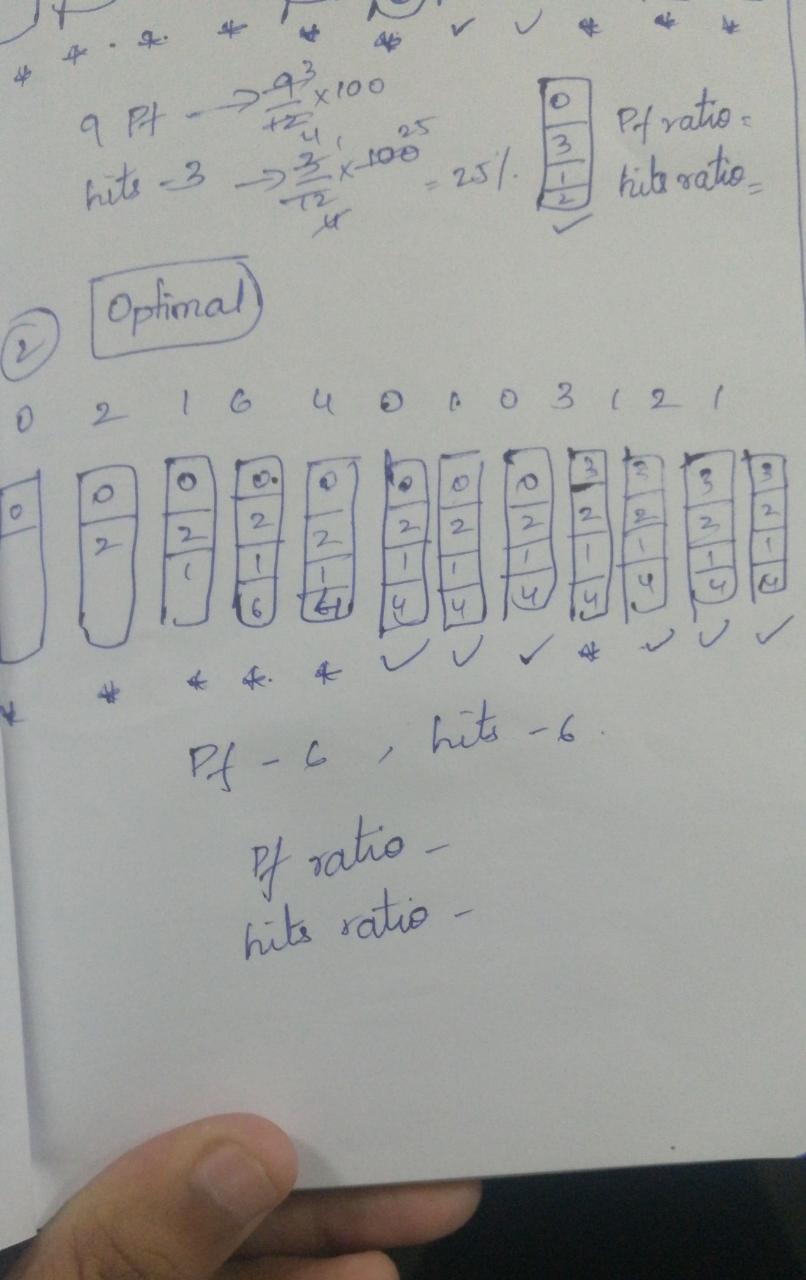 * * * * * * ✓ ✓ * * *
9 Pf → 9/12 × 100
3
4
0
3
1
2
✓
Pf ratio =
hits - 3 → 3/12 × 100 = 25%.
1
25
4
hits ratio =
2 Optimal
0 2 1 6 4 0 1 0 3 1 2 1
0 0 0 0 0 0 0 0 3 3 3 3
2 2 2 2 2 2 2 2 2 2 2
1 1 1 1 1 1 1 1 1 1
6 4 4 4 4 4 4 4 4
* * * * * ✓ ✓ ✓ * ✓ ✓ ✓
Pf - 6 , hits - 6 .
Pf ratio -
hits ratio -